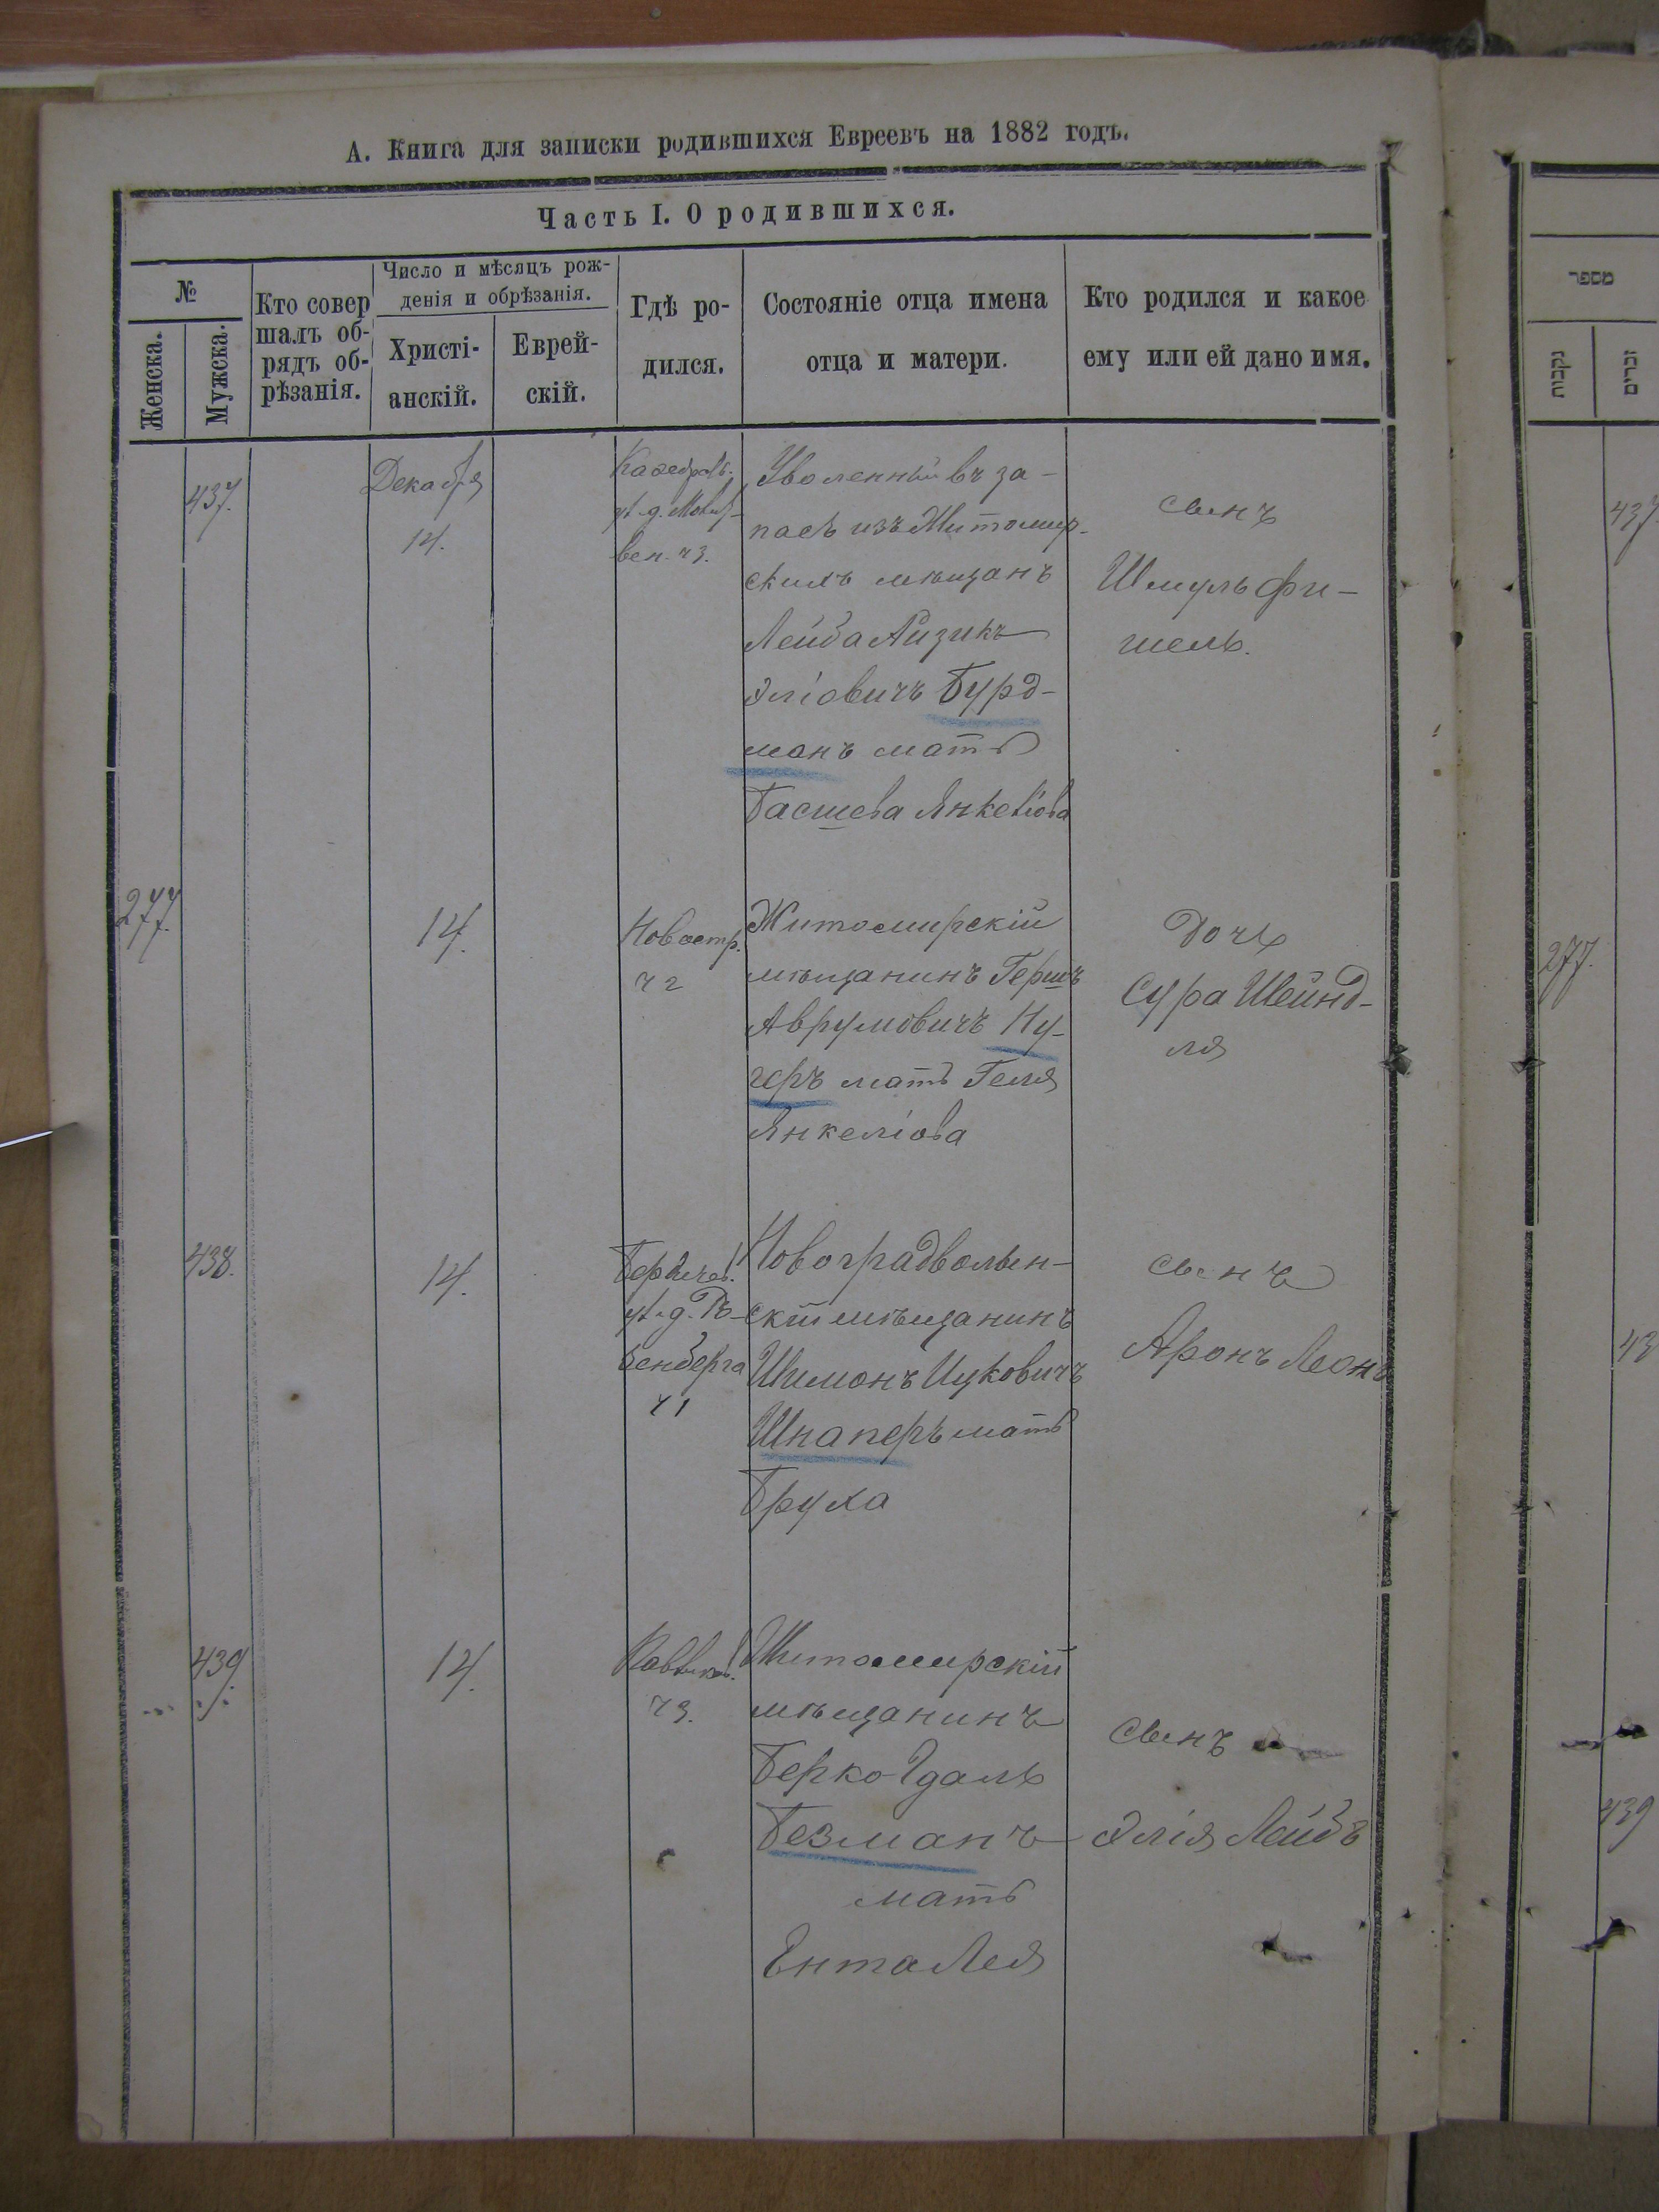 А. Книга для записки родившихся Евреевъ на 1882 годъ.
Часть I. О родившихся.
№
Женска.
Мужска.
Кто совер
шалъ об-
рядъ об-
рѣзанія.
Число и мѣсяцъ рож-
денія и обрѣзанія.
Христі-
анскій.
Еврей-
скій.
Гдѣ ро-
дился.
Состояніе отца имена
отца и матери.
Кто родился и какое
ему или ей дано имя.
437.
Декабря
14.
ч 3.
Уволенный въ за-
пасъ изъ Житомир-
скихъ мѣщанъ
Лейба Айзикъ
Эліовичъ Бурд-
манъ мать
Басшева Янкеліова
сынъ
Шмуль Фи-
шель.
277.
14.
Новостр.
ч 2
Житомирскій
мѣщанинъ Гершъ
Аврумовичъ Ну-
геръ мать Геля
Янкеліова
Дочь
Сура Шейнд-
ля
438.
14.
Бердичев.
ул. д.
ч 1
Новоградволын-
скій мѣщанинъ
Шимонъ Ицковичъ
Шнаперъ мать
Бруха
сынъ
Аронъ Леонъ
439
14.
ч 3.
Житомирскій
мѣщанинъ
Берко-Гдаль
Безманъ
мать
Ента Лея
сынъ
Элія Лейбъ
מספר
נקבות
זכרים
437.
277.
43
439